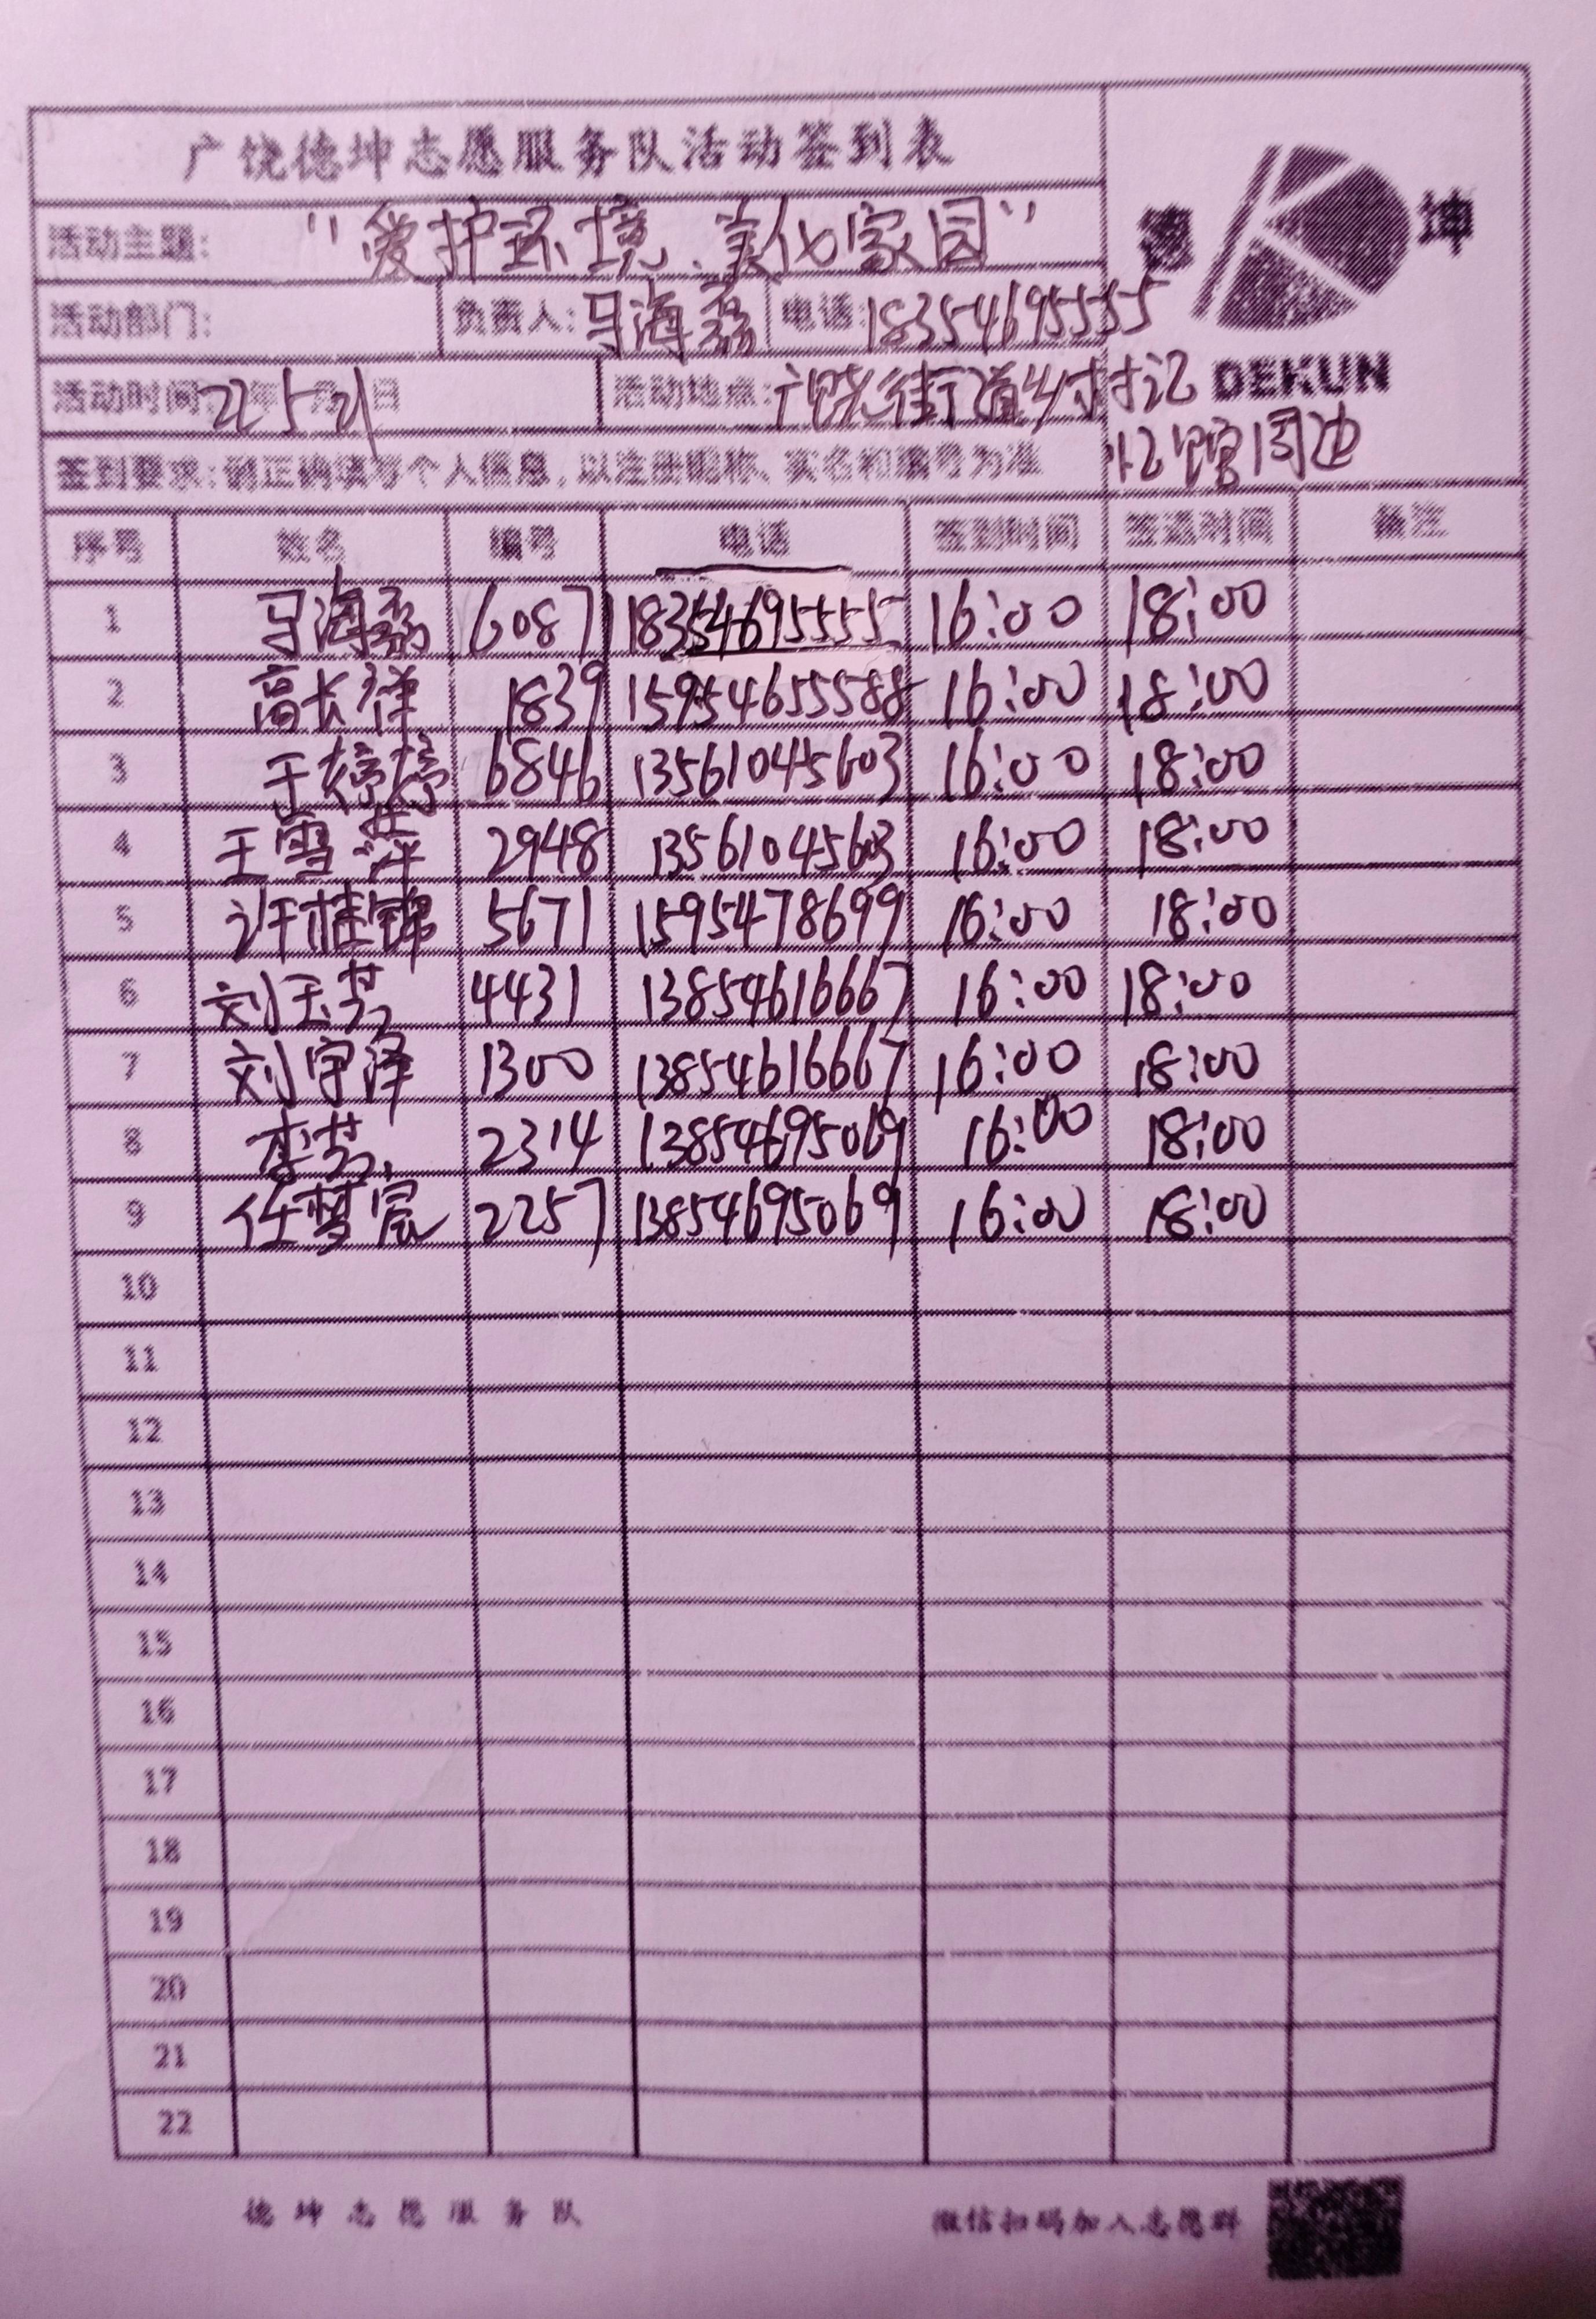 广饶德坤志愿服务队活动签到表
德 坤
DEKUN
活动主题: "爱护环境、美化家园"
活动部门: 负责人: 马海荔 电话: 18354695555
活动时间: 22年5月21日 活动地点: 广饶街道乡村记
忆馆周边
签到要求:请正确填写个人信息,以注册昵称、实名和编号为准
序号 姓名 编号 电话 签到时间 签退时间 备注
1 马海荔 6087 18354695555 16:00 18:00
2 高长祥 1839 15954655588 16:00 18:00
3 王婷婷 6846 13561045603 16:00 18:00
4 王雪萍 2948 13561045603 16:00 18:00
5 许桂锦 5671 1595478699 16:00 18:00
6 刘玉芳 4431 13854616667 16:00 18:00
7 刘宇泽 1300 13854616667 16:00 18:00
8 李芳 2314 13854695069 16:00 18:00
9 任梦宸 2257 13854695069 16:00 18:00
10
11
12
13
14
15
16
17
18
19
20
21
22
德坤志愿服务队 微信扫码加入志愿群